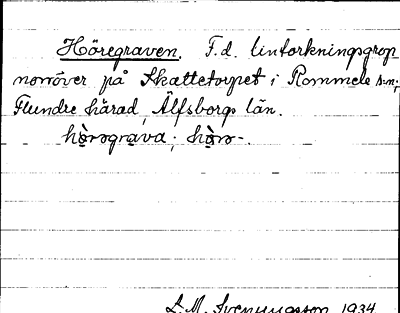 Höregraven. F.d. lintorkningsgrop
norröver på Skattetorpet i Rommele s:n,
Flundre härad, Älfsborgs län.
hòrograva; hòro-.
L.M. Svenungsson 1934